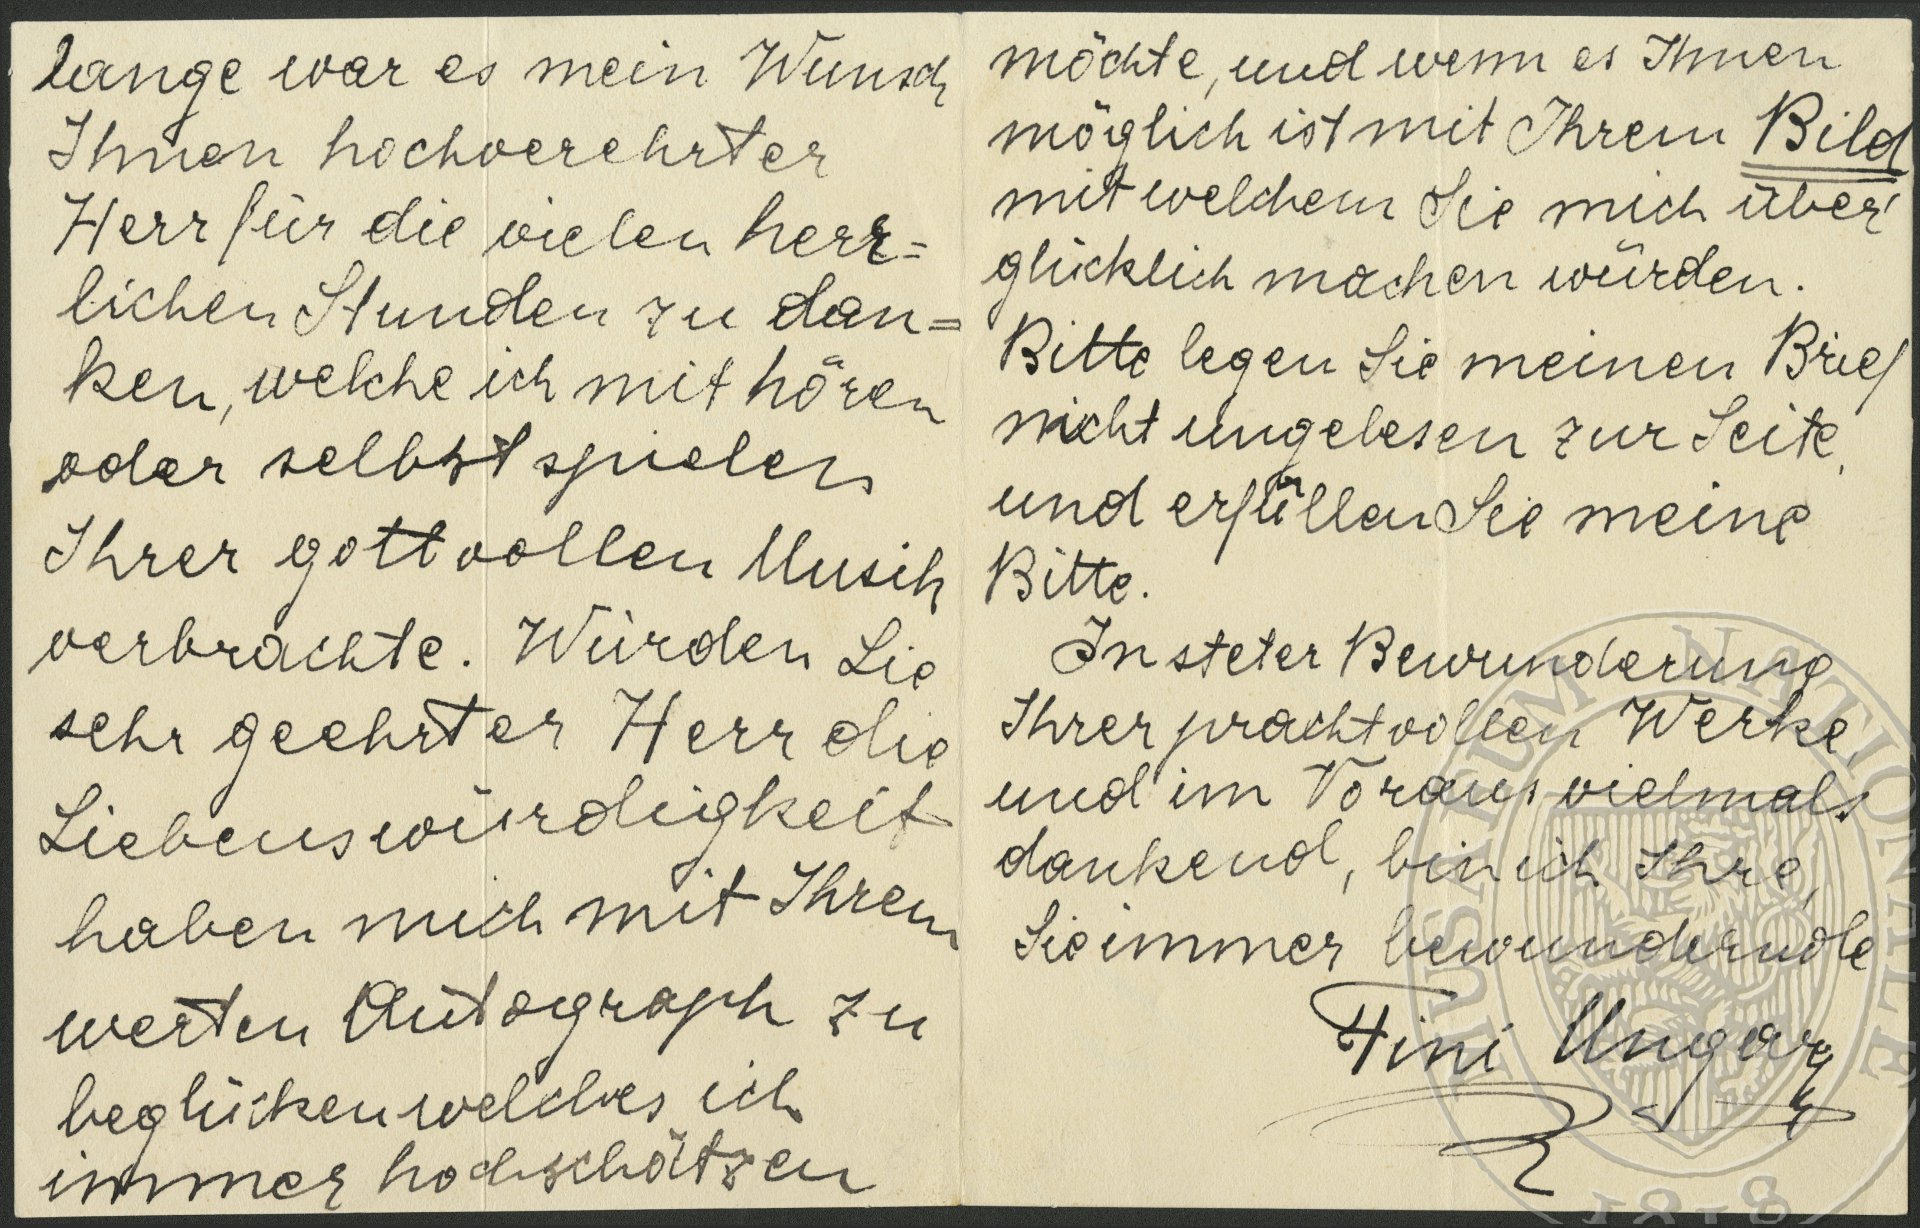 lange war es mein Wunsch
Ihnen hochverehrter
Herr für die vielen herr=
lichen Stunden zu dan=
ken, welche ich mit hören
oder selbst spielen
Ihrer gottvollen Musik
verbrachte. Würden Sie
sehr geehrter Herr die
Liebenswürdigkeit
haben mich mit Ihrem
werten Autograph zu
beglücken welches ich
immer hochschätzen
möchte, und wenn es Ihnen
möglich ist mit Ihrem Bild
mit welchem Sie mich über
glücklich machen würden.
Bitte legen Sie meinen Brief
nicht ungelesen zur Seite,
und erfüllen Sie meine
Bitte.
In steter Bewunderung
Ihrer prachtvollen Werke,
und im Voraus vielmals
dankend, bin ich Ihre,
Sie immer bewundernde
Fini Ungar
MUSAEUM NATIONALE
1818